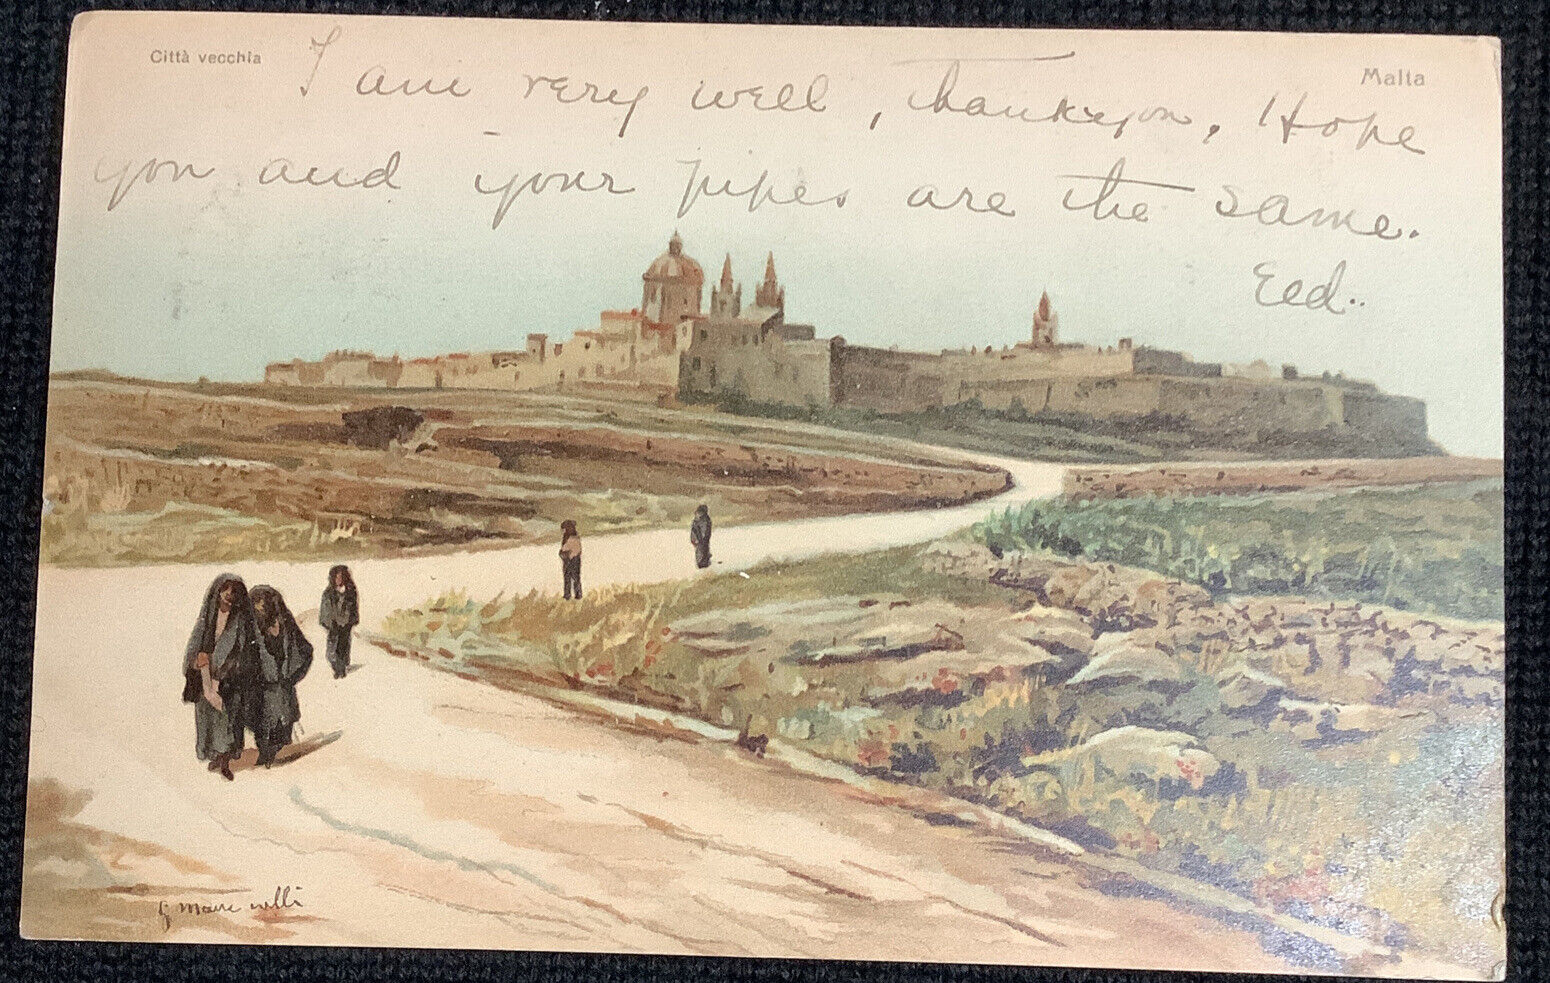 Città vecchia
Malta
I am very well, thankyou, Hope
you and your pipes are the same.
Eed..